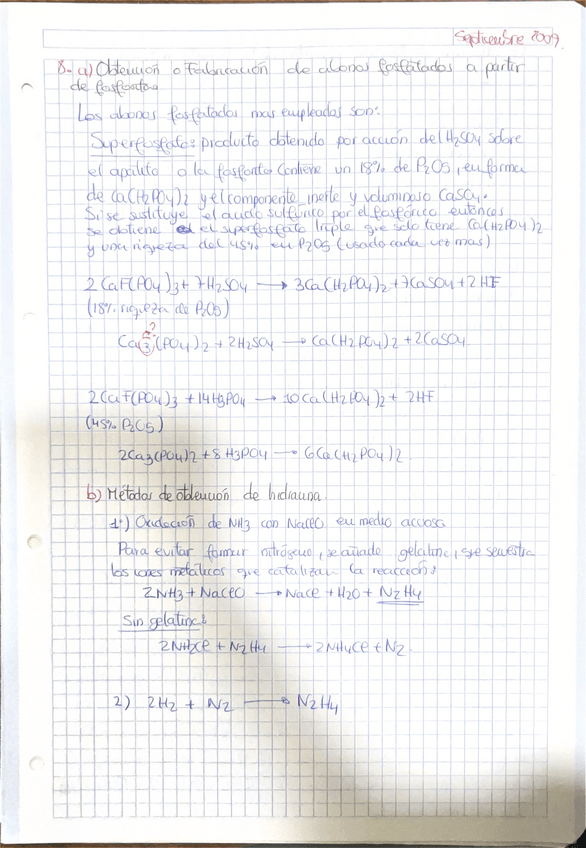 Septiembre 2009
8- a) Obtención o Fabricación de abonos fosfatados a partir
de fosforita
Los abonos fosfatados mas empleados son:
Superfosfato: producto obtenido por acción del H2SO4 sobre
el apatito o la fosforita contiene un 18% de P2O5, en forma
de Ca(H2PO4)2 y el componente inerte y voluminoso CaSO4.
Si se sustituye el acido sulfúrico por el fosfórico entonces
se obtiene el superfosfato triple que solo tiene Ca(H2PO4)2
y una riqueza del 45% en P2O5 (usado cada vez mas)
2CaF(PO4)3 + 7H2SO4 → 3Ca(H2PO4)2 + 7CaSO4 + 2HF
(18% riqueza de P2O5)
Ca3(PO4)2 + 2H2SO4 → Ca(H2PO4)2 + 2CaSO4
2CaF(PO4)3 + 14H3PO4 → 10Ca(H2PO4)2 + 2HF
(45% P2O5)
2Ca3(PO4)2 + 8H3PO4 → 6Ca(H2PO4)2
b) Métodos de obtención de hidracina.
1º) Oxidación de NH3 con NaClO en medio acuoso
Para evitar formar nitrógeno, se añade gelatina, que secuestra
los iones metálicos que catalizan la reacción:
2NH3 + NaClO → NaCl + H2O + N2H4
Sin gelatina:
2NH2Cl + N2H4 → 2NH4Cl + N2.
2) 2H2 + N2 → N2H4